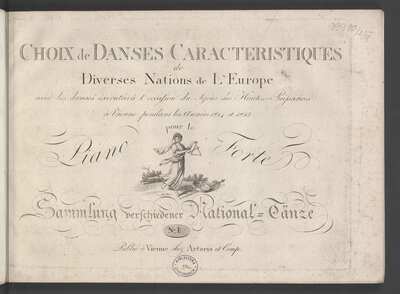 CHOIX de DANSES CARACTERISTIQUES
de
Diverses Nations de L'Europe
avec les danses executées à l'occasion du Sejour des Hautes
à Vienne pendant les années 1814 et 1815
pour le
Piano Forte
Sammlung verschiedener National=Tänze
No. 1.
Publié à Vienne chez Artaria et Comp.